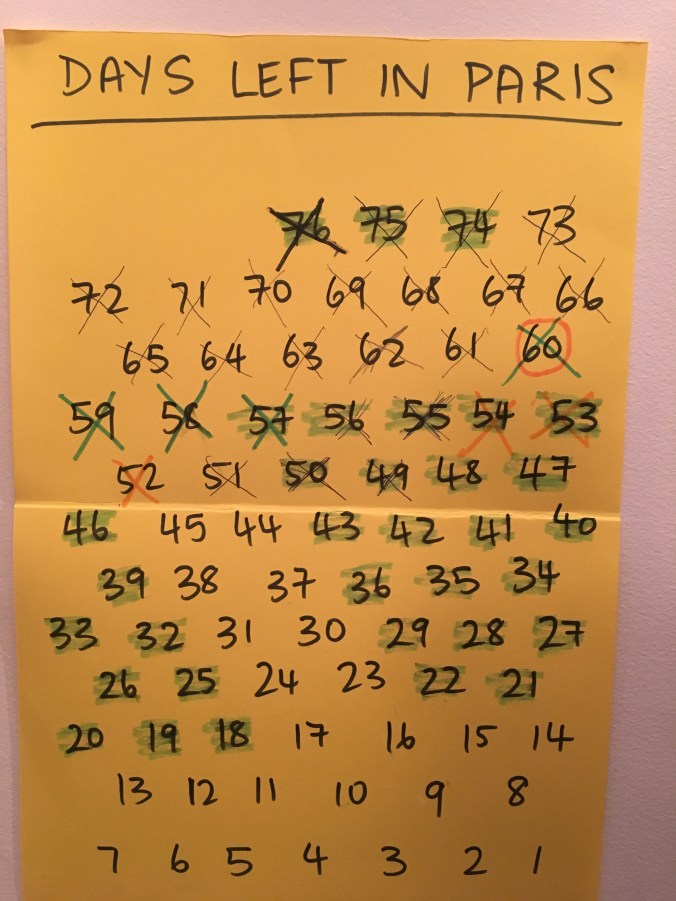 DAYS LEFT IN PARIS
76 75 74 73
72 71 70 69 68 67 66
65 64 63 62 61 60
59 58 57 56 55 54 53
52 51 50 49 48 47
46 45 44 43 42 41 40
39 38 37 36 35 34
33 32 31 30 29 28 27
26 25 24 23 22 21
20 19 18 17 16 15 14
13 12 11 10 9 8
7 6 5 4 3 2 1